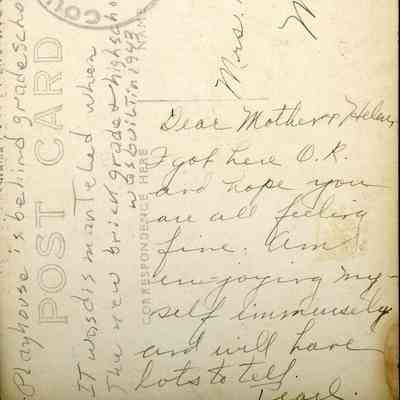 Dear Mother & Helen
I got here O.K.
and hope you
are all feeling
fine. Am
en-joying my-
self immensely
and will have
lots to tell.
Playhouse is behind gradescho
IT was dismanteled when
The new brick grade & highscho
was built in 1943
POST CARD
CORRESPONDENCE HERE
NAME
Mrs.